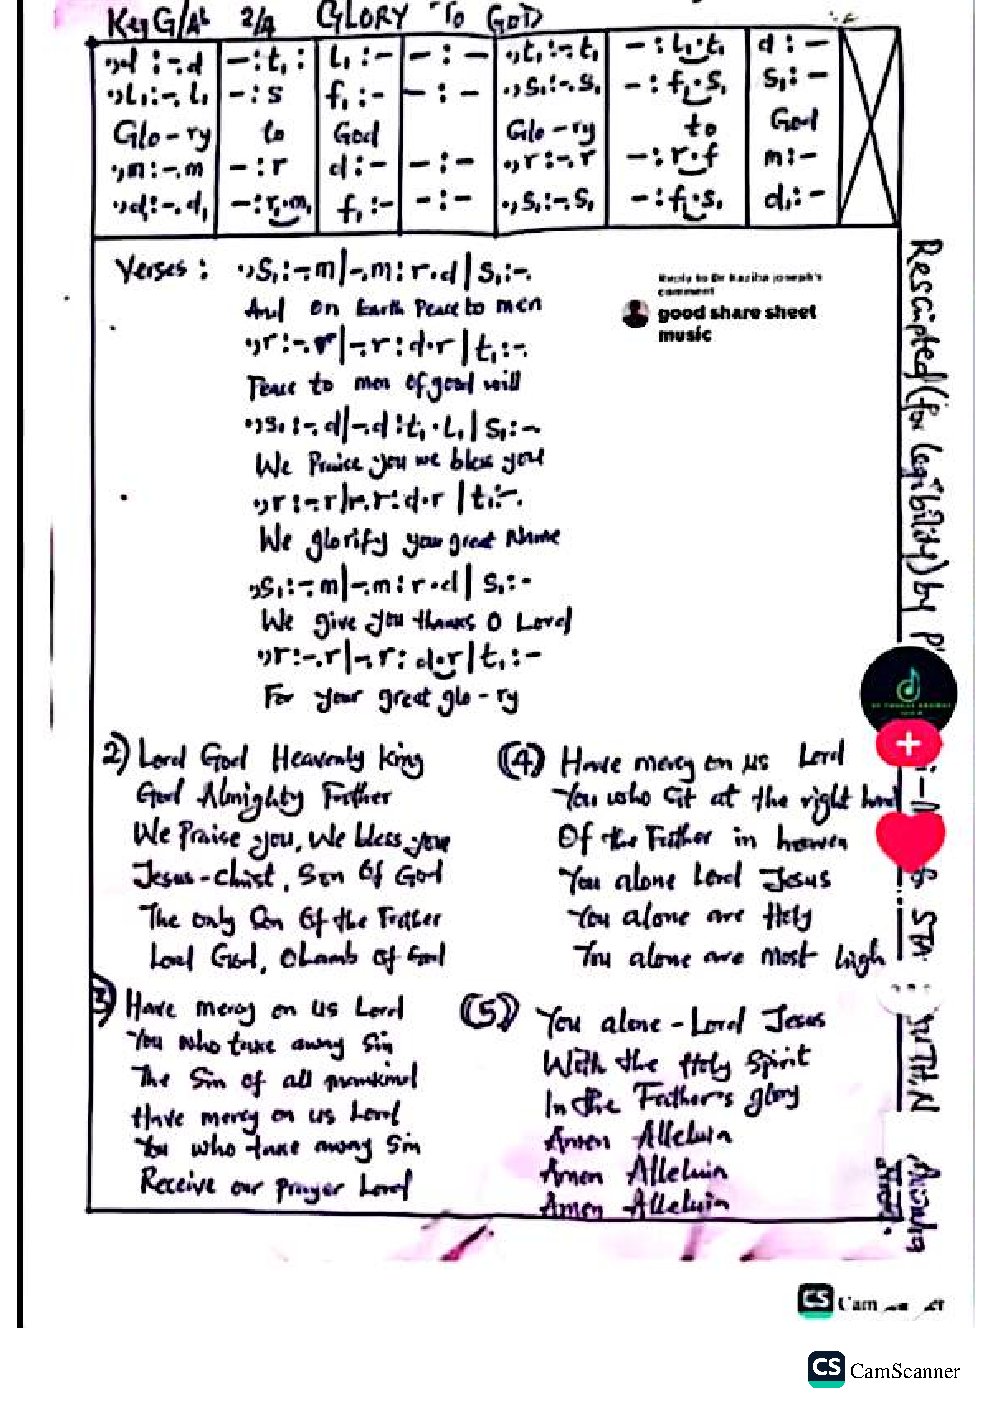 Key G/Ab 2/4 GLORY TO GOD
.,d :-.d | -:t₁ : | l₁ :- | - : - | .,t₁ :-.t₁ | - : l₁.t₁ | d : -
.,l₁:-.l₁ | - : s | f₁ :- | - : - | .,s₁:-.s₁ | - : f₁.s₁ | s₁ : -
Glo-ry to God Glo-ry to God
.,m:-.m | - : r | d :- | - : - | .,r :-.r | - : r.f | m:-
.,d:-.d₁ | -:r₁.m₁ | f₁ :- | - : - | .,s₁:-.s₁ | - : f₁.s₁ | d₁ : -
Verses : .,s₁:-.m|-.m:r.d|s₁:-.
And on Earth Peace to men
.,r:-.r|-.r:d.r|t₁:-.
Peace to men of good will
.,s₁:-.d|-.d:t₁.l₁|s₁:-
We Praise you we bless you
.,r:-.r|-.r:d.r|t₁:-.
We glorify your great Name
.,s₁:-.m|-.m:r.d|s₁:-
We give you thanks O Lord
.,r:-.r|-.r:d.r|t₁:-
For your great glo-ry
Reply to Dr Kaziba joseph's
comment
good share sheet
music
2) Lord God Heavenly King
God Almighty Father
We Praise you, We bless you
Jesus-Christ, Son Of God
The only Son Of the Father
Lord God, O Lamb of God
3) Have mercy on us Lord
You who take away Sin
The Sin of all mankind
Have mercy on us Lord
You who take away Sin
Receive our prayer Lord
(4) Have mercy on us Lord
You who sit at the right hand
Of the Father in heaven
You alone Lord Jesus
You alone are Holy
You alone are most high
(5) You alone-Lord Jesus
With the Holy Spirit
In the Father's glory
Amen Alleluia
Amen Alleluia
Amen Alleluia
Rescripted (for legibility) by
CS
CS CamScanner